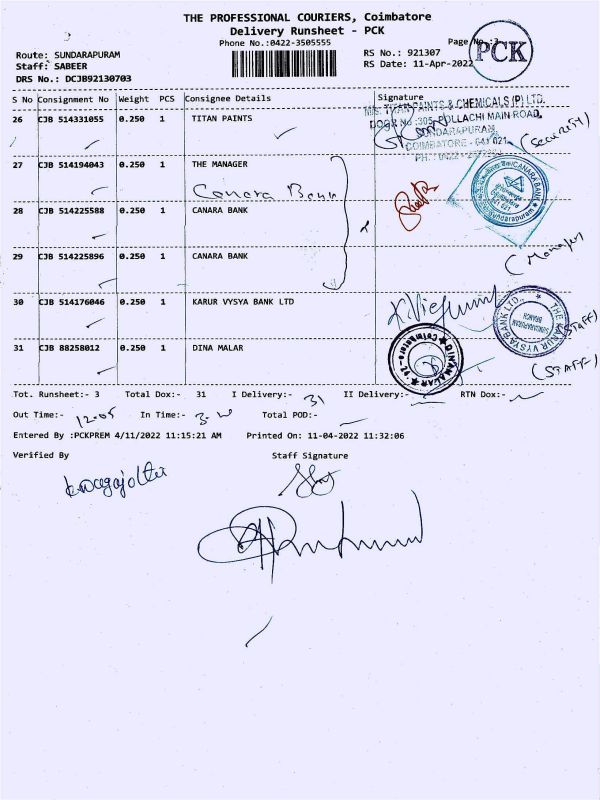 THE PROFESSIONAL COURIERS, Coimbatore
Delivery Runsheet - PCK
Phone No.:0422-3505555
Page No.:3
PCK
Route: SUNDARAPURAM
Staff: SABEER
DRS No.: DCJB92130703
RS No.: 921307
RS Date: 11-Apr-2022
S No Consignment No Weight PCS Consignee Details Signature
26 CJB 514331055 0.250 1 TITAN PAINTS
M/s. TITAN PAINTS & CHEMICALS (P) LTD.
DOOR No :305, POLLACHI MAIN ROAD,
SUNDARAPURAM,
COIMBATORE - 641 021
PH
(Security)
27 CJB 514194043 0.250 1 THE MANAGER
Canara Bank
CANARA BANK
Sundarapuram
28 CJB 514225588 0.250 1 CANARA BANK
29 CJB 514225896 0.250 1 CANARA BANK
(Manager
30 CJB 514176046 0.250 1 KARUR VYSYA BANK LTD
THE KARUR VYSYA BANK LTD.,
SUNDARAPURAM
BRANCH
(STAFF)
31 CJB 88258012 0.250 1 DINA MALAR
DINAMALAR
Coimbatore
(STAFF)
Tot. Runsheet:- 3 Total Dox:- 31 I Delivery:- 31 II Delivery:- RTN Dox:-
Out Time:- 12-05 In Time:- Total POD:-
Entered By :PCKPREM 4/11/2022 11:15:21 AM Printed On: 11-04-2022 11:32:06
Verified By Staff Signature